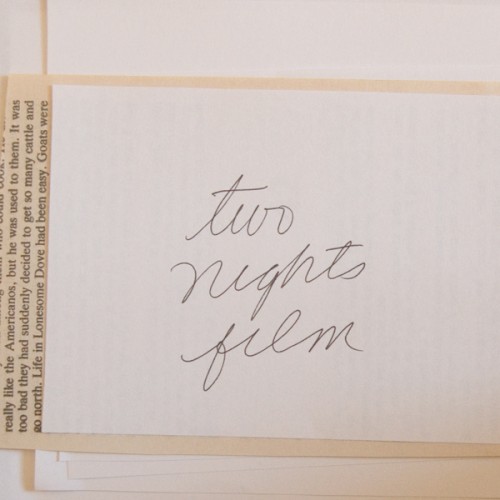 two
nights
film
really like the Americanos, but he was used to them. It was
too bad they had suddenly decided to get so many cattle and
go north. Life in Lonesome Dove had been easy. Goats were